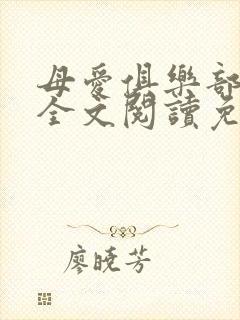 母愛俱樂部
全文閱讀免
廖曉芳